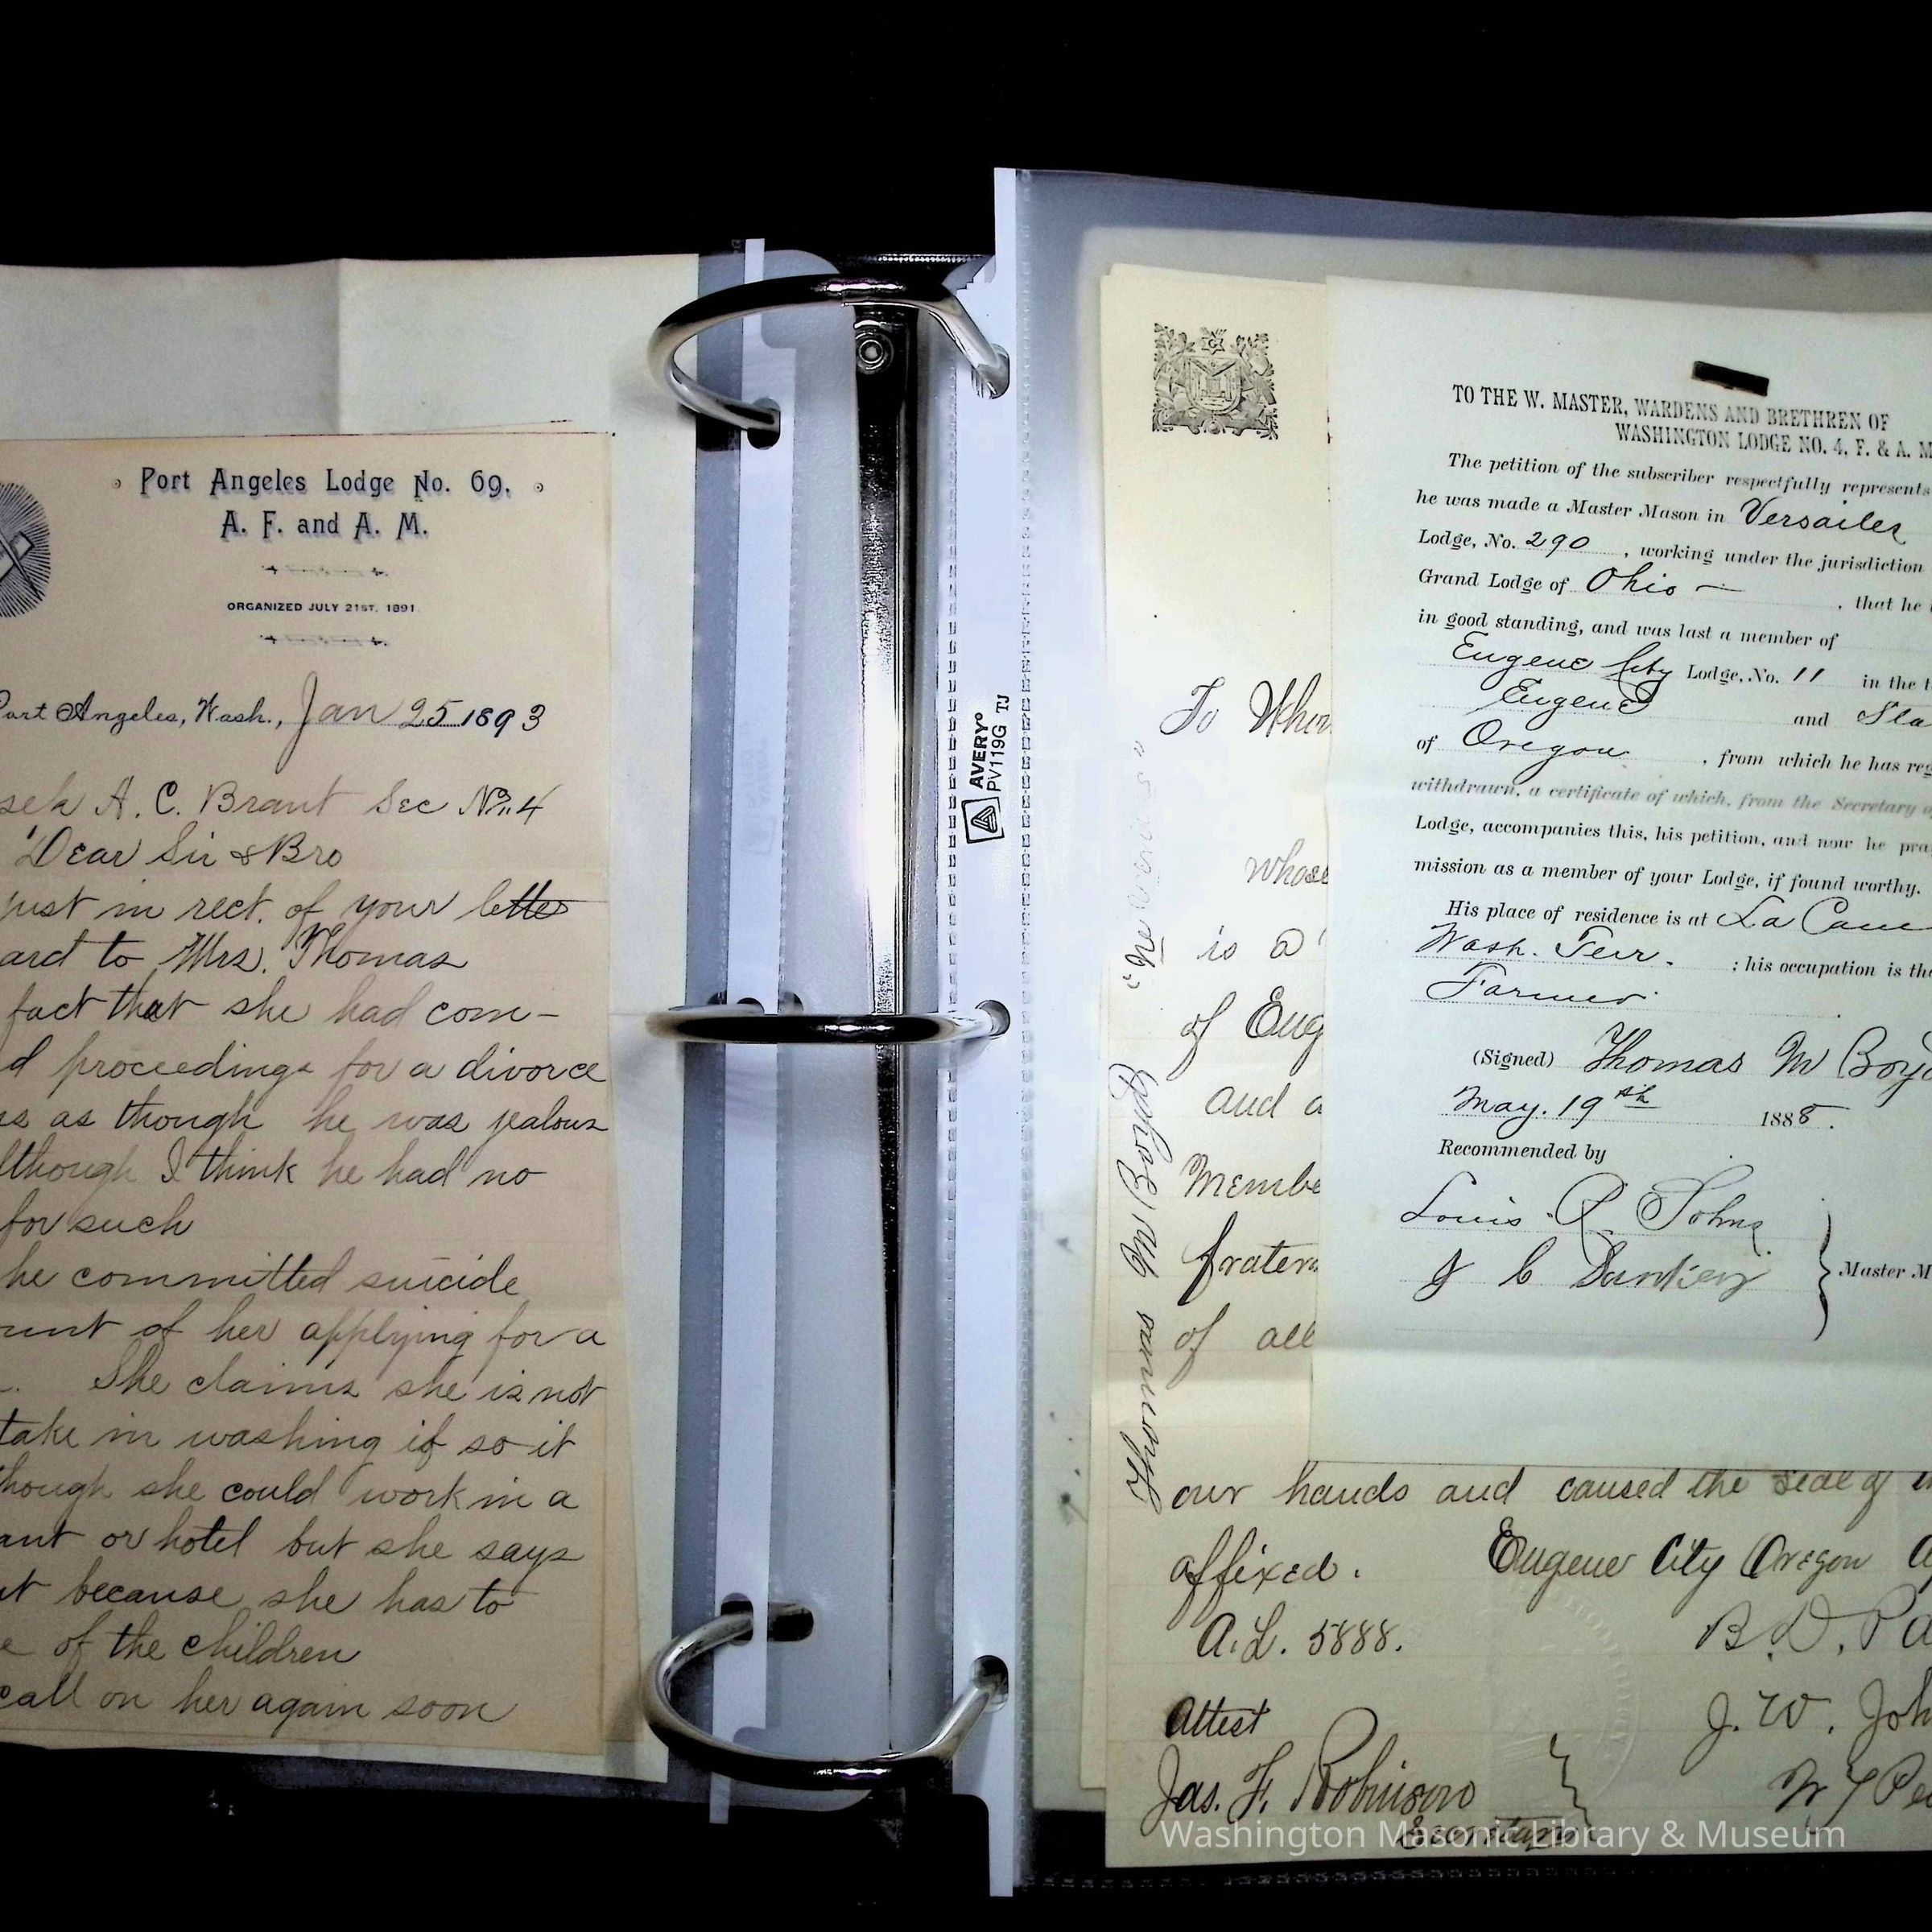 Port Angeles Lodge No. 69.
A. F. and A. M.
ORGANIZED JULY 21ST. 1891
Port Angeles, Wash., Jan 25 1893
A. C. Brant Sec No. 4
Dear Sir & Bro
just in rect. of your letter
ard to Mrs. Thomas
fact that she had com-
d proceedings for a divorce
ss as though he was jealous
lthough I think he had no
for such
he committed suicide
unt of her applying for a
She claims she is not
take in washing if so it
though she could work in a
ant or hotel but she says
ut because she has to
e of the children
call on her again soon
AVERY®
PV119G TJ
To Whom
whose
is a
of Eug
and a
Membe
fratern
of all
our hands and caused the seal of
affixed. Eugene City Oregon
A. L. 5888.
B. D. Pa
Attest
J. W. Joh
Jas. F. Robinson
Secretary
Thomas M Boyd
TO THE W. MASTER, WARDENS AND BRETHREN OF
WASHINGTON LODGE NO. 4, F. & A. M
The petition of the subscriber respectfully represents
he was made a Master Mason in Versailes
Lodge, No. 290, working under the jurisdiction
Grand Lodge of Ohio, that he
in good standing, and was last a member of
Eugene City Lodge, No. 11 in the t
Eugene and Sta
of Oregon, from which he has reg
withdrawn, a certificate of which, from the Secretary o
Lodge, accompanies this, his petition, and now he pra
mission as a member of your Lodge, if found worthy.
His place of residence is at La
Wash. Terr. ; his occupation is tha
Farmer.
(Signed) Thomas M Boyd
May. 19th 1888.
Recommended by
Louis
Master M
Washington Masonic Library & Museum